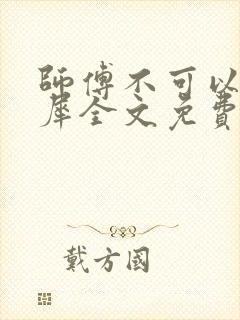 師傅不可以
犀全文免費
戴方國